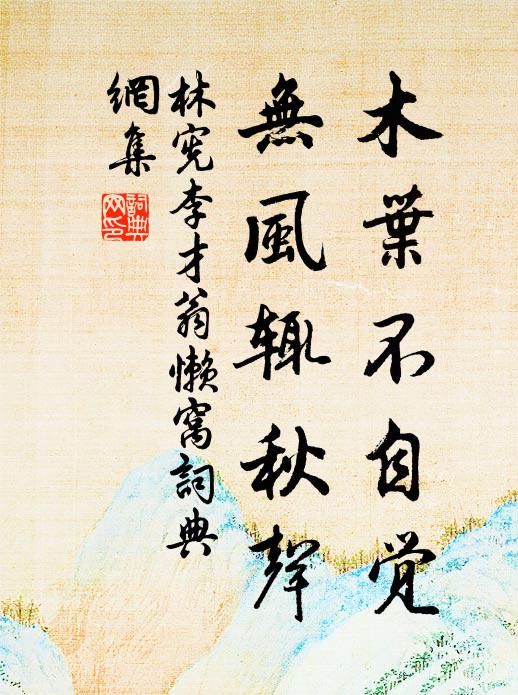 木葉不自觉
無風辄秋聲
林宪李才翁懒窩詞典
網集
詞典
网印